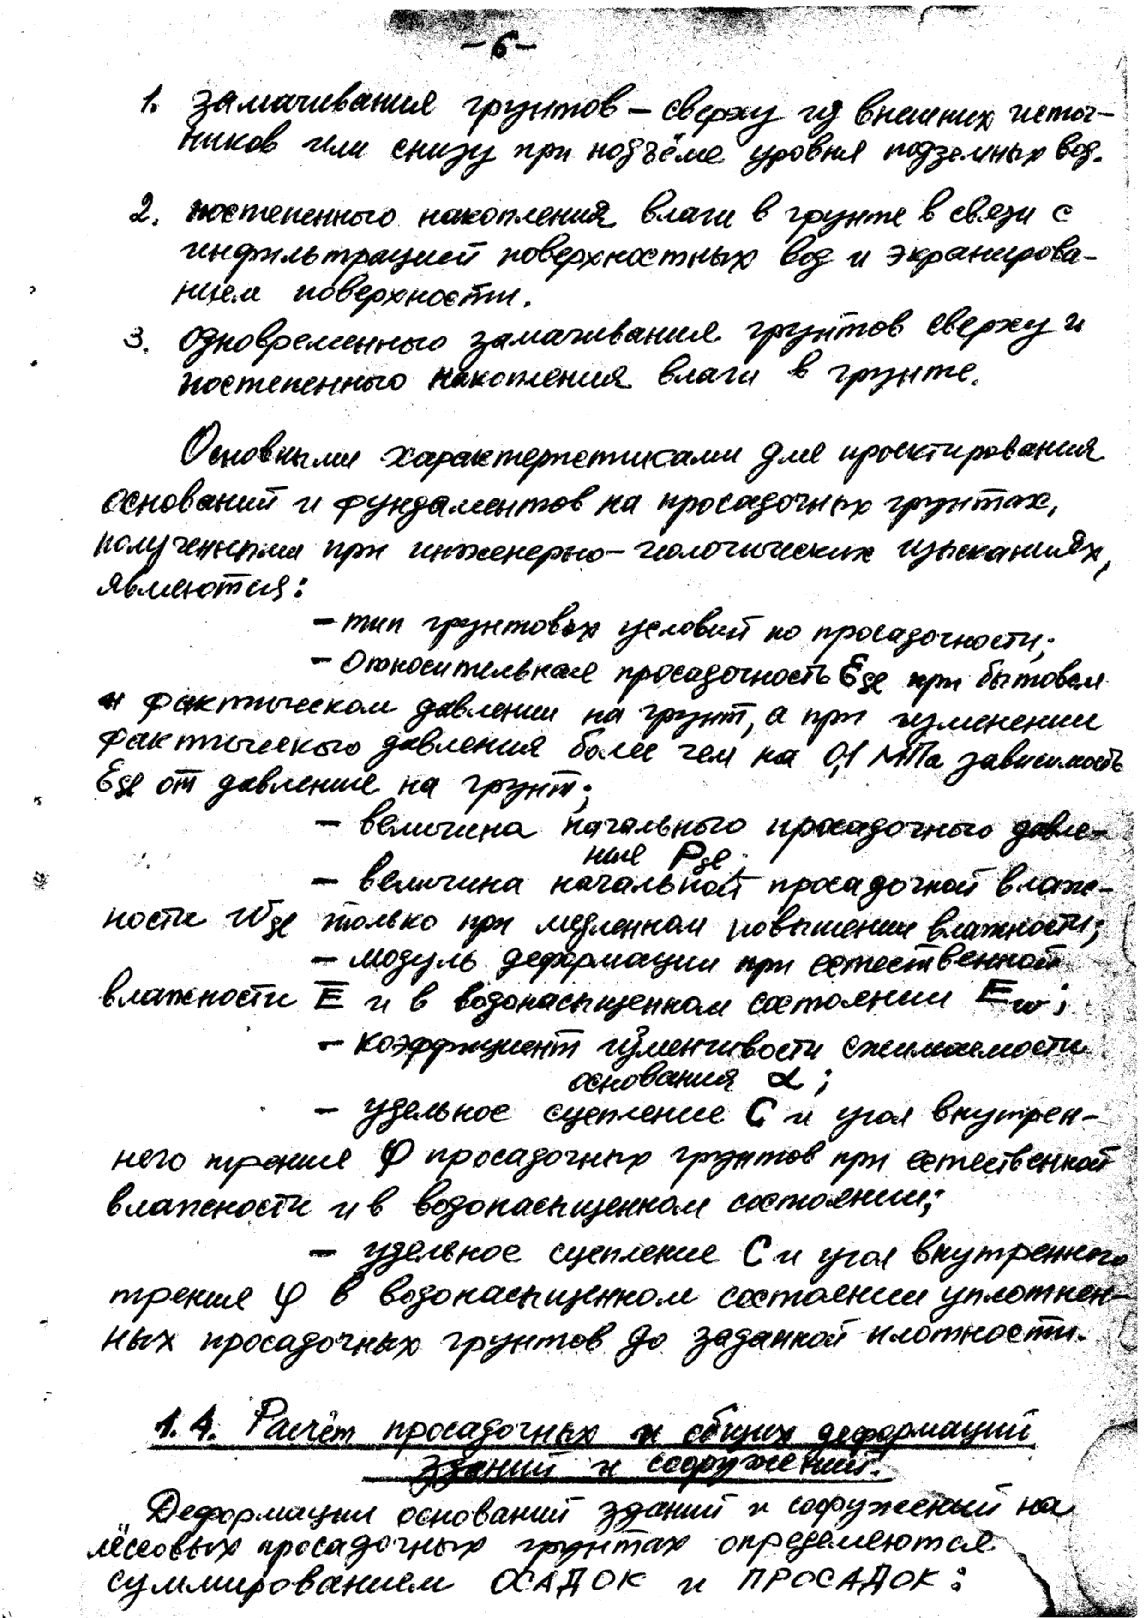 -6-
1. замачивания грунтов – сверху из внешних источ-
ников или снизу при подъёме уровня подземных вод.
2. постепенного накопления влаги в грунте в связи с
инфильтрацией поверхностных вод и экранирова-
нием поверхности.
3. одновременного замачивания грунтов сверху и
постепенного накопления влаги в грунте.
Основными характеристиками для проектирования
оснований и фундаментов на просадочных грунтах,
полученными при инженерно-геологических изысканиях,
являются:
– тип грунтовых условий по просадочности;
– относительная просадочность Ɛsl при бытовом
и фактическом давлении на грунт, а при изменении
фактического давления более чем на 0,1 МПа зависимость
Ɛsl от давления на грунт;
– величина начального просадочного давле-
ния Psl;
– величина начальной просадочной влаж-
ности Wsl только при медленном повышении влажности;
– модуль деформации при естественной
влажности E и в водонасыщенном состоянии Ew;
– коэффициент изменчивости сжимаемости
основания α;
– удельное сцепление C и угол внутрен-
него трения φ просадочных грунтов при естественной
влажности и в водонасыщенном состоянии;
– удельное сцепление C и угол внутреннего
трения φ в водонасыщенном состоянии уплотнен-
ных просадочных грунтов до заданной плотности.
1.4. Расчёт просадочных и общих деформаций
зданий и сооружений.
Деформации оснований зданий и сооружений на
лёссовых просадочных грунтах определяются
суммированием ОСАДОК и ПРОСАДОК: